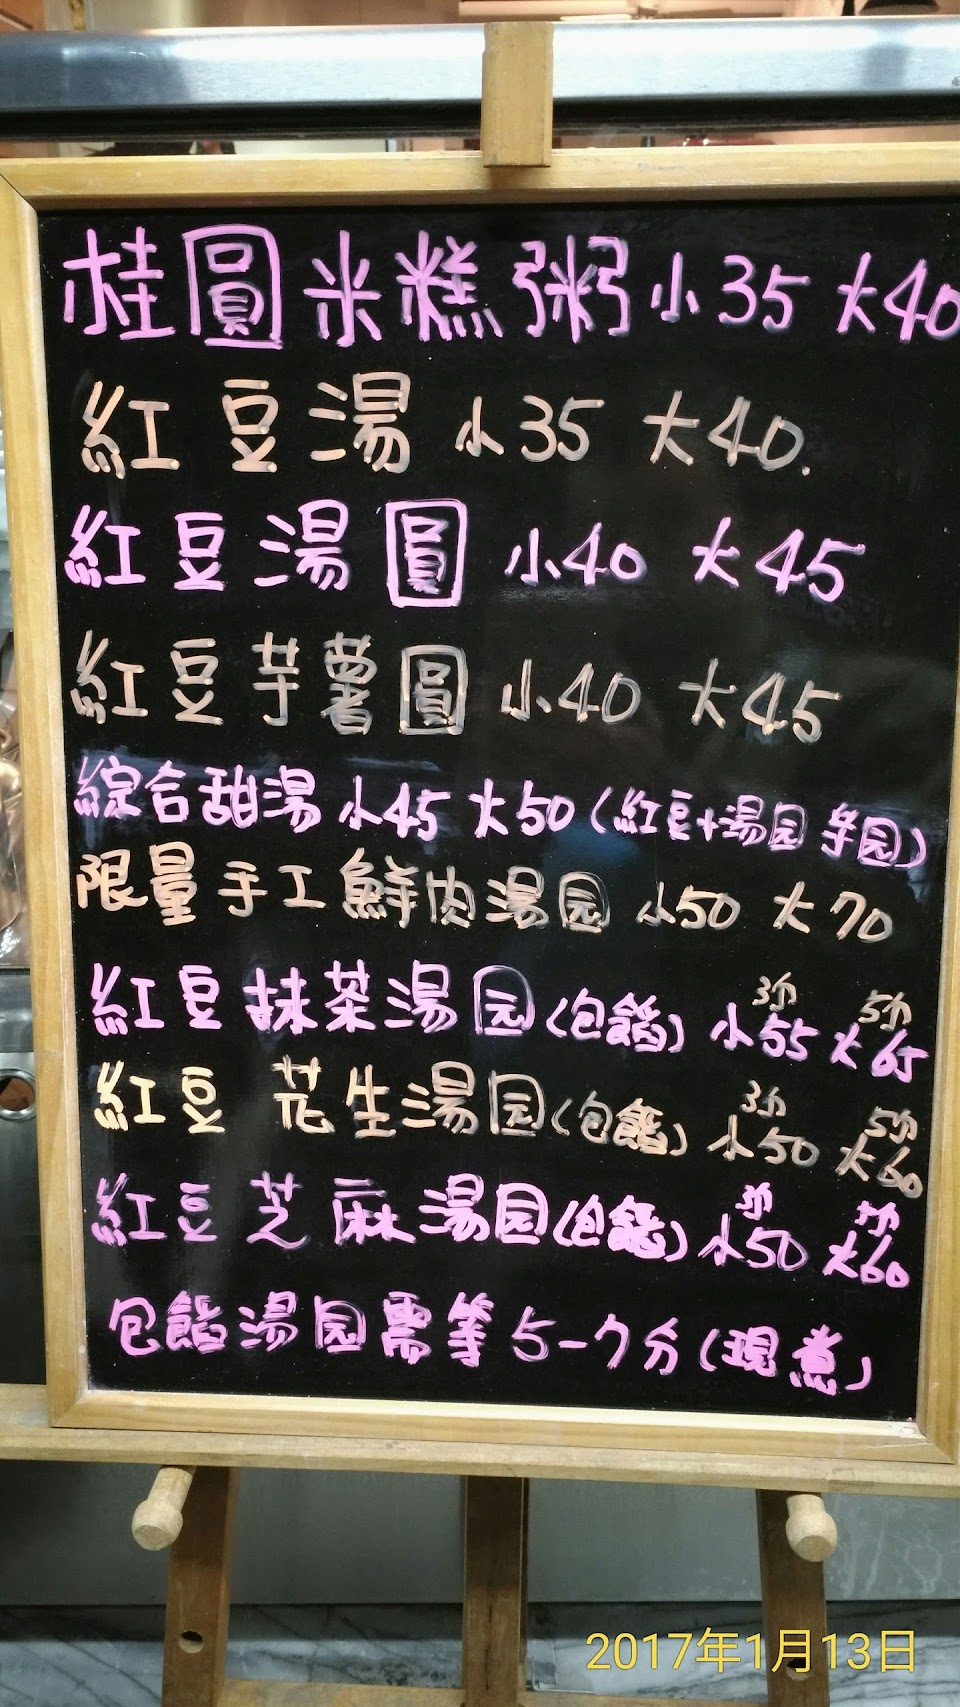 桂圓米糕粥 小35 大40
紅豆湯 小35 大40.
紅豆湯圓 小40 大45
紅豆芋薯圓 小40 大45
綜合甜湯 小45 大50 (紅豆+湯园 芋园)
限量手工鮮肉湯园 小50 大70
紅豆抹茶湯园(包餡) 小55 大65
3份 5份
紅豆 花生湯园(包餡) 小50 大60
3份 5份
紅豆芝麻湯园(包餡) 小50 大60
3份
包餡湯园需等5-7分(現煮)
2017年1月13日